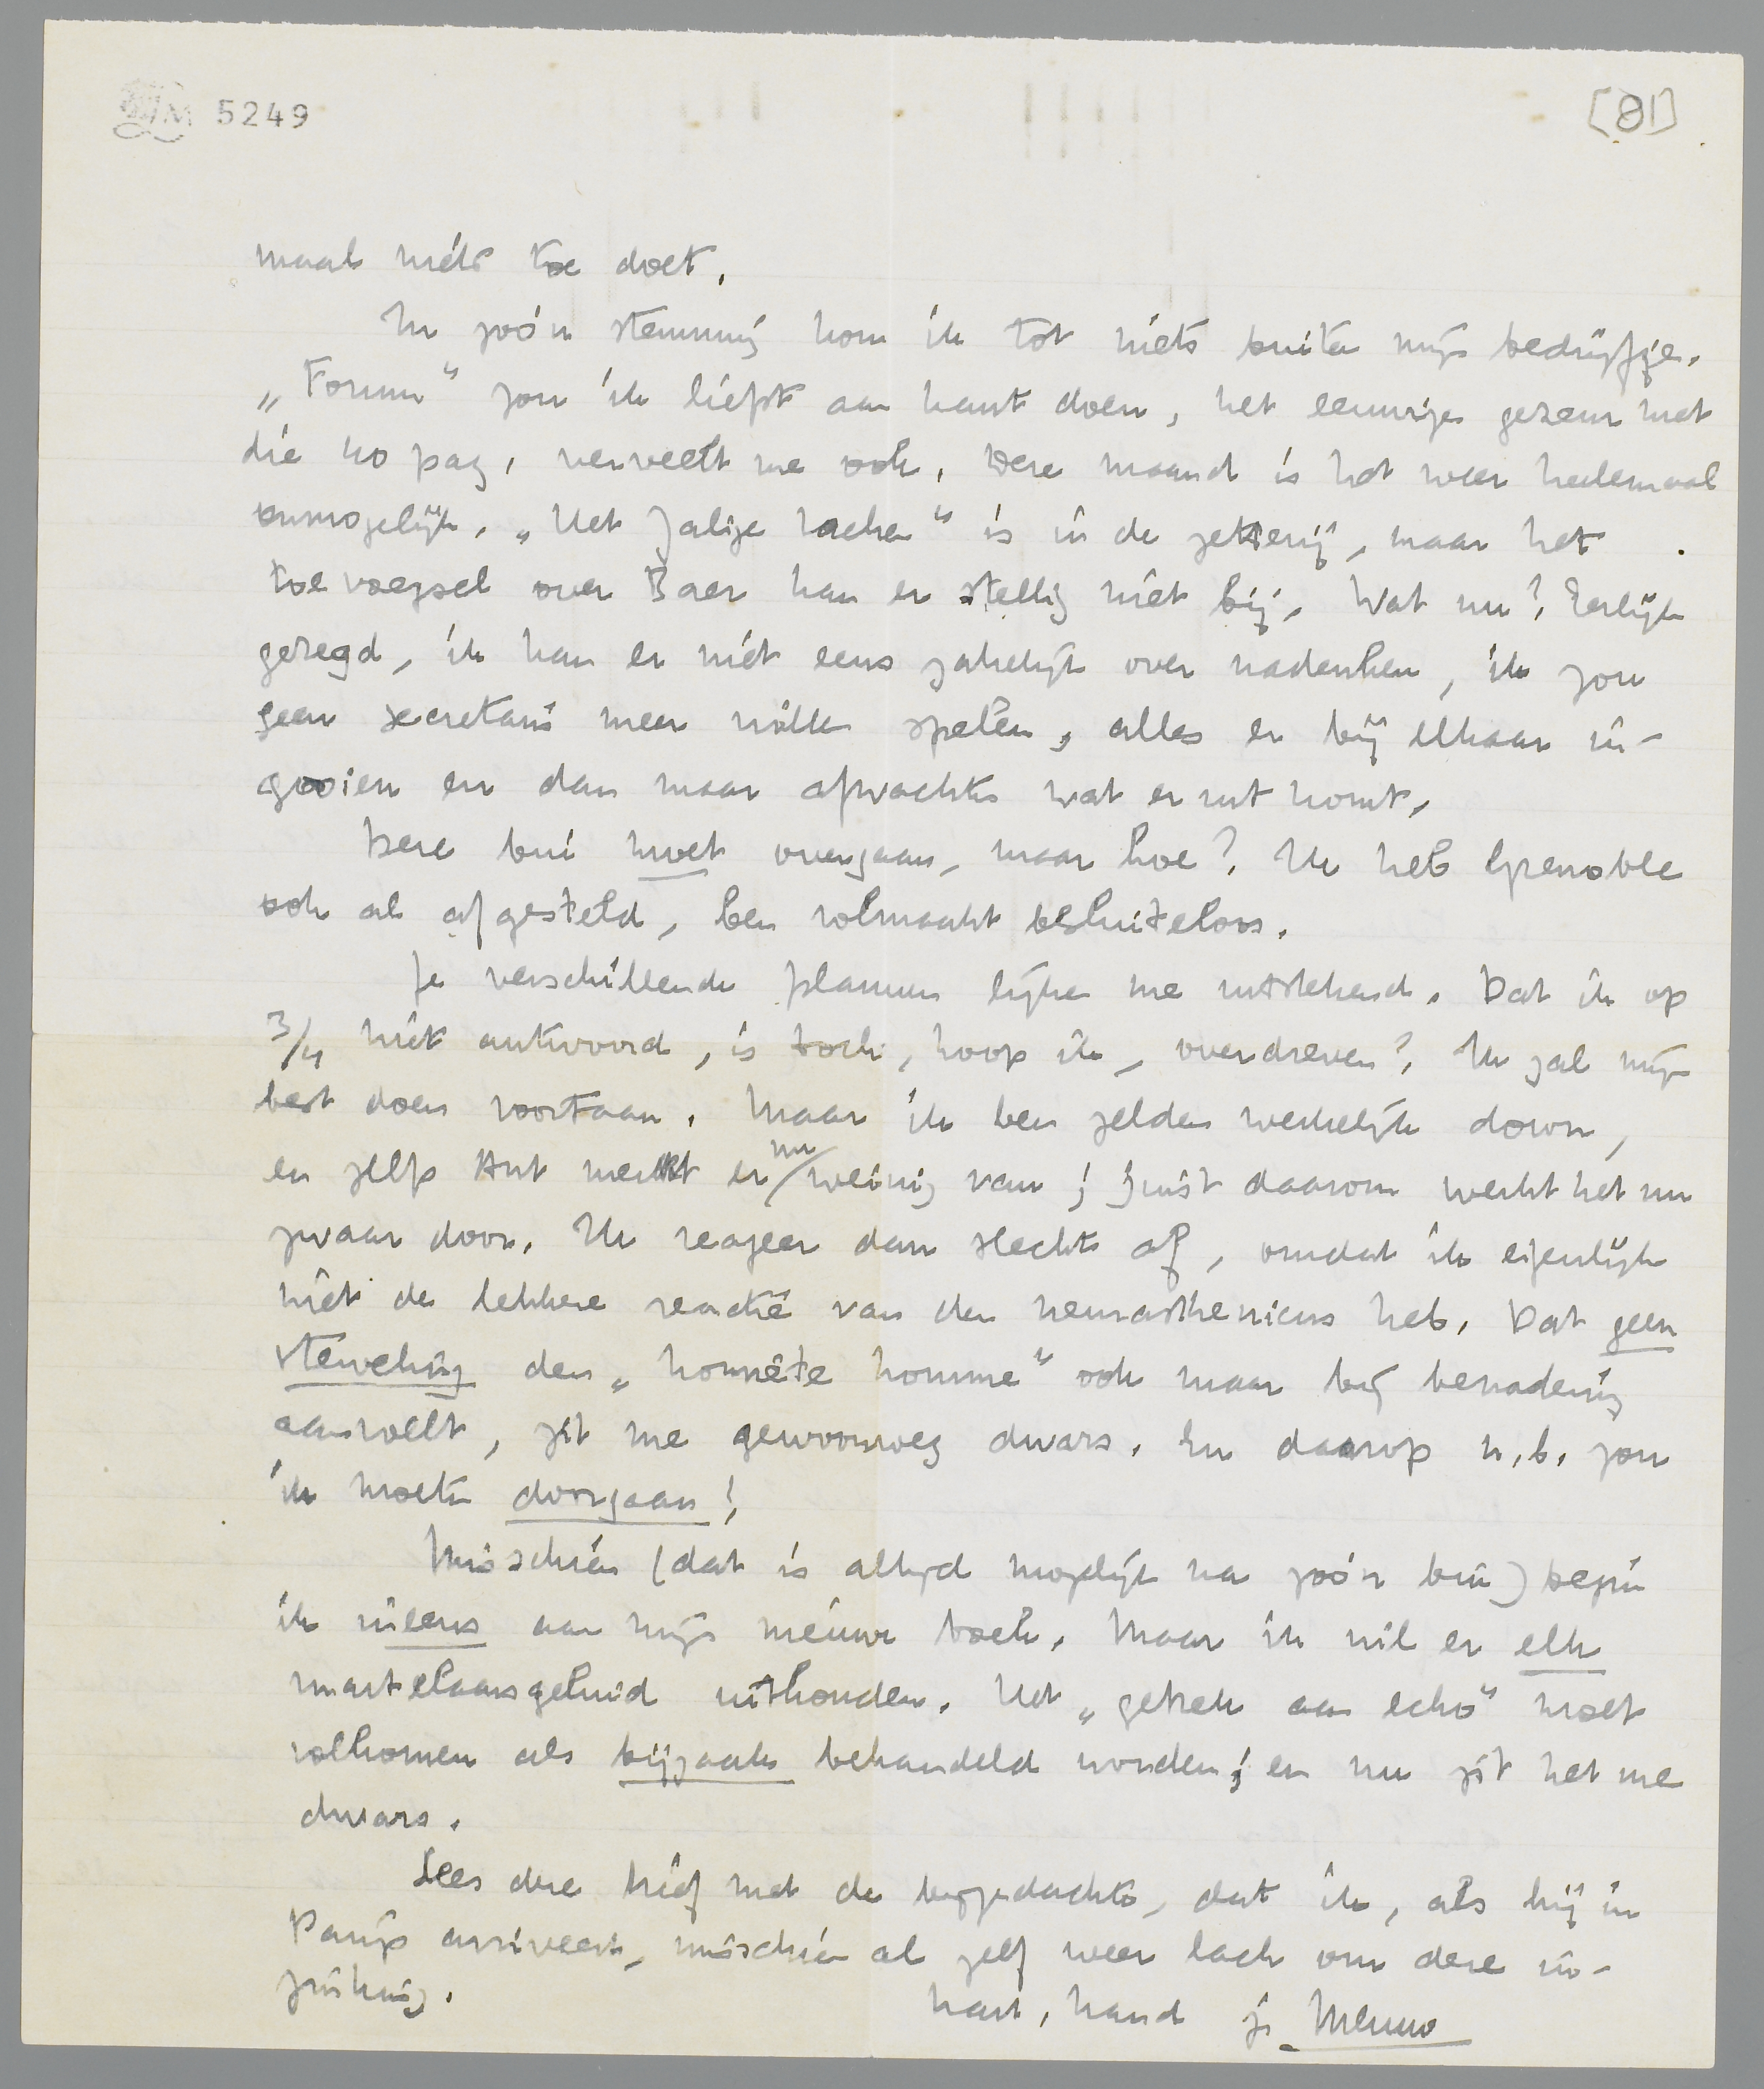 5249
[81]
maal niets toe doet.
In zoo'n stemming kom ik tot niets buiten mijn bedrijfje.
„Forum" zou ik liefst aan kant doen, het eeuwige gezeur met
die 40 pag. verveelt me ook. Deze maand is het weer heelemaal
onmogelijk. „Het Zalige Lachen" is in de zetterij, maar het
toevoegsel over Baer kan er stellig niet bij. Wat nu? Eerlijk
gezegd, ik kan er niet eens zakelijk over nadenken, ik zou
geen secretaris meer willen spelen, alles er bij elkaar in-
gooien en dan maar afwachten wat er uit komt.
Deze bui moet overgaan, maar hoe? Ik heb Grenoble
ook al afgesteld, ben volmaakt besluiteloos.
Je verschillende plannen lijken me uitstekend. Dat ik op
3/4 niet antwoord, is toch, hoop ik, overdreven? Ik zal mijn
best doen voortaan. Maar ik ben zelden werkelijk down,
en zelfs Ant merkt er nu weinig van; juist daarom werkt het nu
zwaar door. Ik reageer dan slecht af, omdat ik eigenlijk
niet de lekkere reactie van den neurasthenicus heb. Dat geen
sterveling den „honnête homme" ook maar bij benadering
aanvoelt, zit me gewoonweg dwars. En daarop n.b. zou
ik moeten doorgaan!
Misschien (dat is altijd mogelijk na zoo'n bui) begin
ik ineens aan mijn nieuwe boek. Maar ik wil er elk
martelaarsgeluid uithouden. Het „gebrek aan echo" moet
volkomen als bijzaak behandeld worden; en nu zit het me
dwars.
Lees deze brief met de bijgedachte, dat ik, als hij in
Parijs arriveert, misschien al zelf weer lach om deze in-
zinking.
hart. hand je Menno